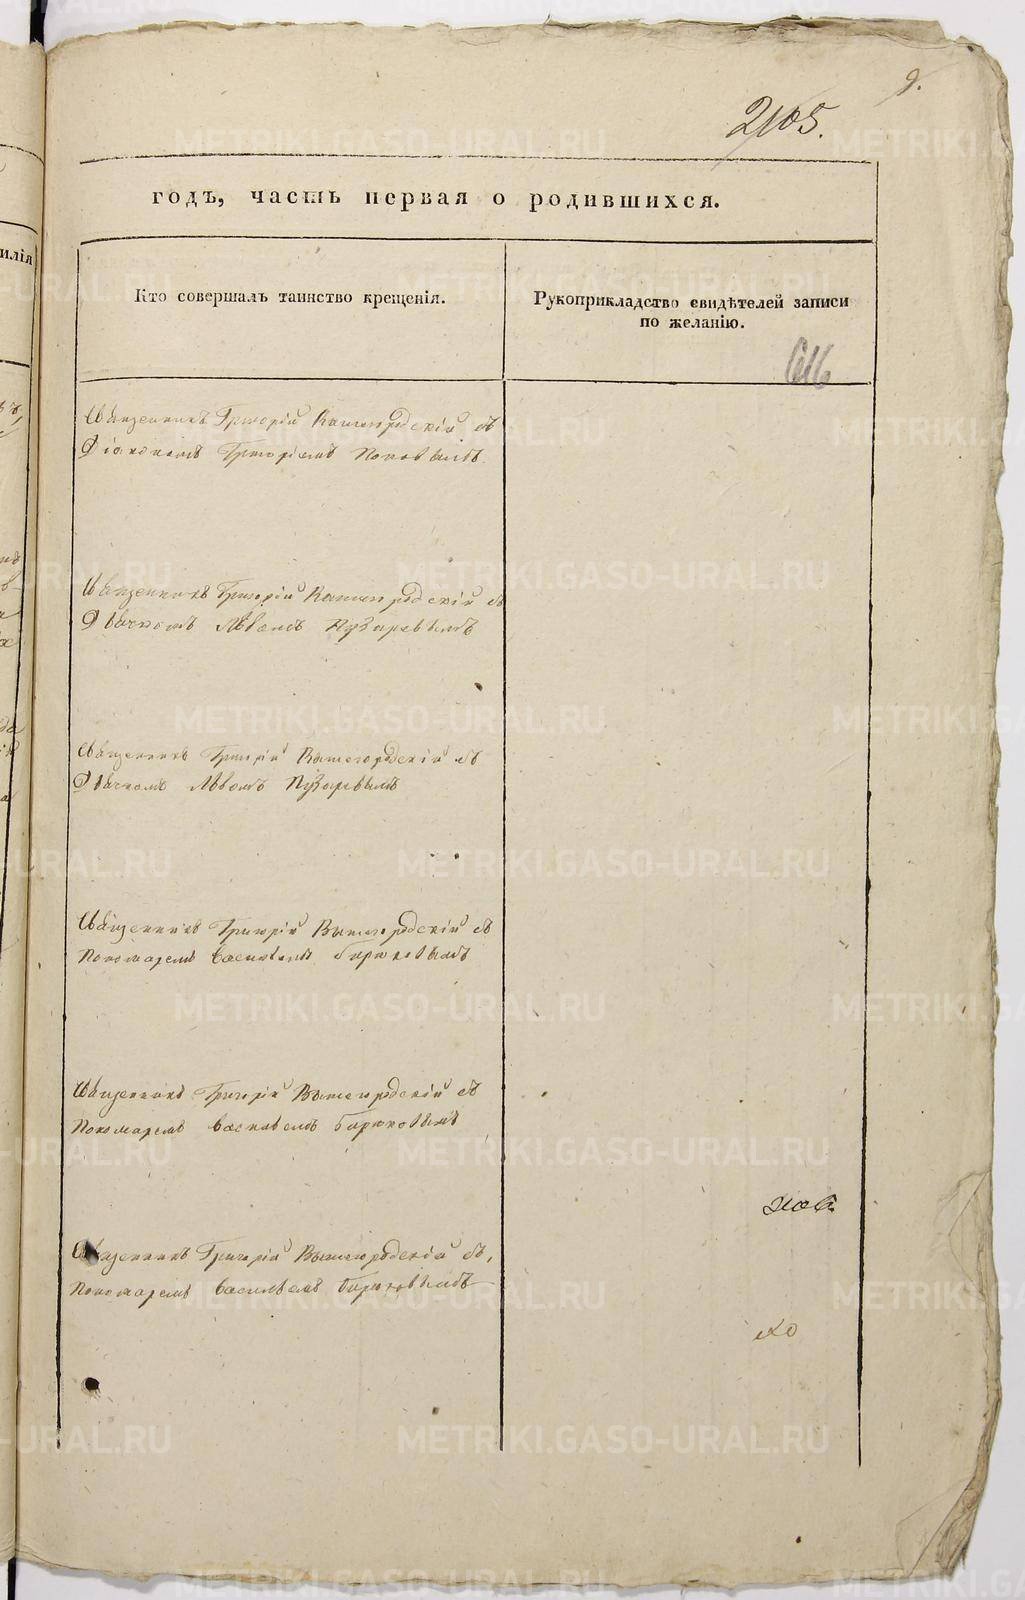 9.
2105.
годъ, часть первая о родившихся.
Кто совершалъ таинство крещенія.
Рукоприкладство свидѣтелей записи
по желанію.
616
Священникъ Григорій Вышегородскій съ
Діакономъ Григоріемъ Поповымъ.
Священникъ Григорій Вышегородскій съ
Дьячкомъ Львомъ Пузыревымъ
Священникъ Григорій Вышегородскій съ
Дьячкомъ Львомъ Пузыревымъ
Священникъ Григорій Вышегородскій съ
Пономаремъ Васильемъ Бирюковымъ
Священникъ Григорій Вышегородскій съ
Пономаремъ Васильемъ Бирюковымъ
Священникъ Григорій Вышегородскій съ,
Пономаремъ Васильемъ Бирюковымъ
METRIKI.GASO-URAL.RU